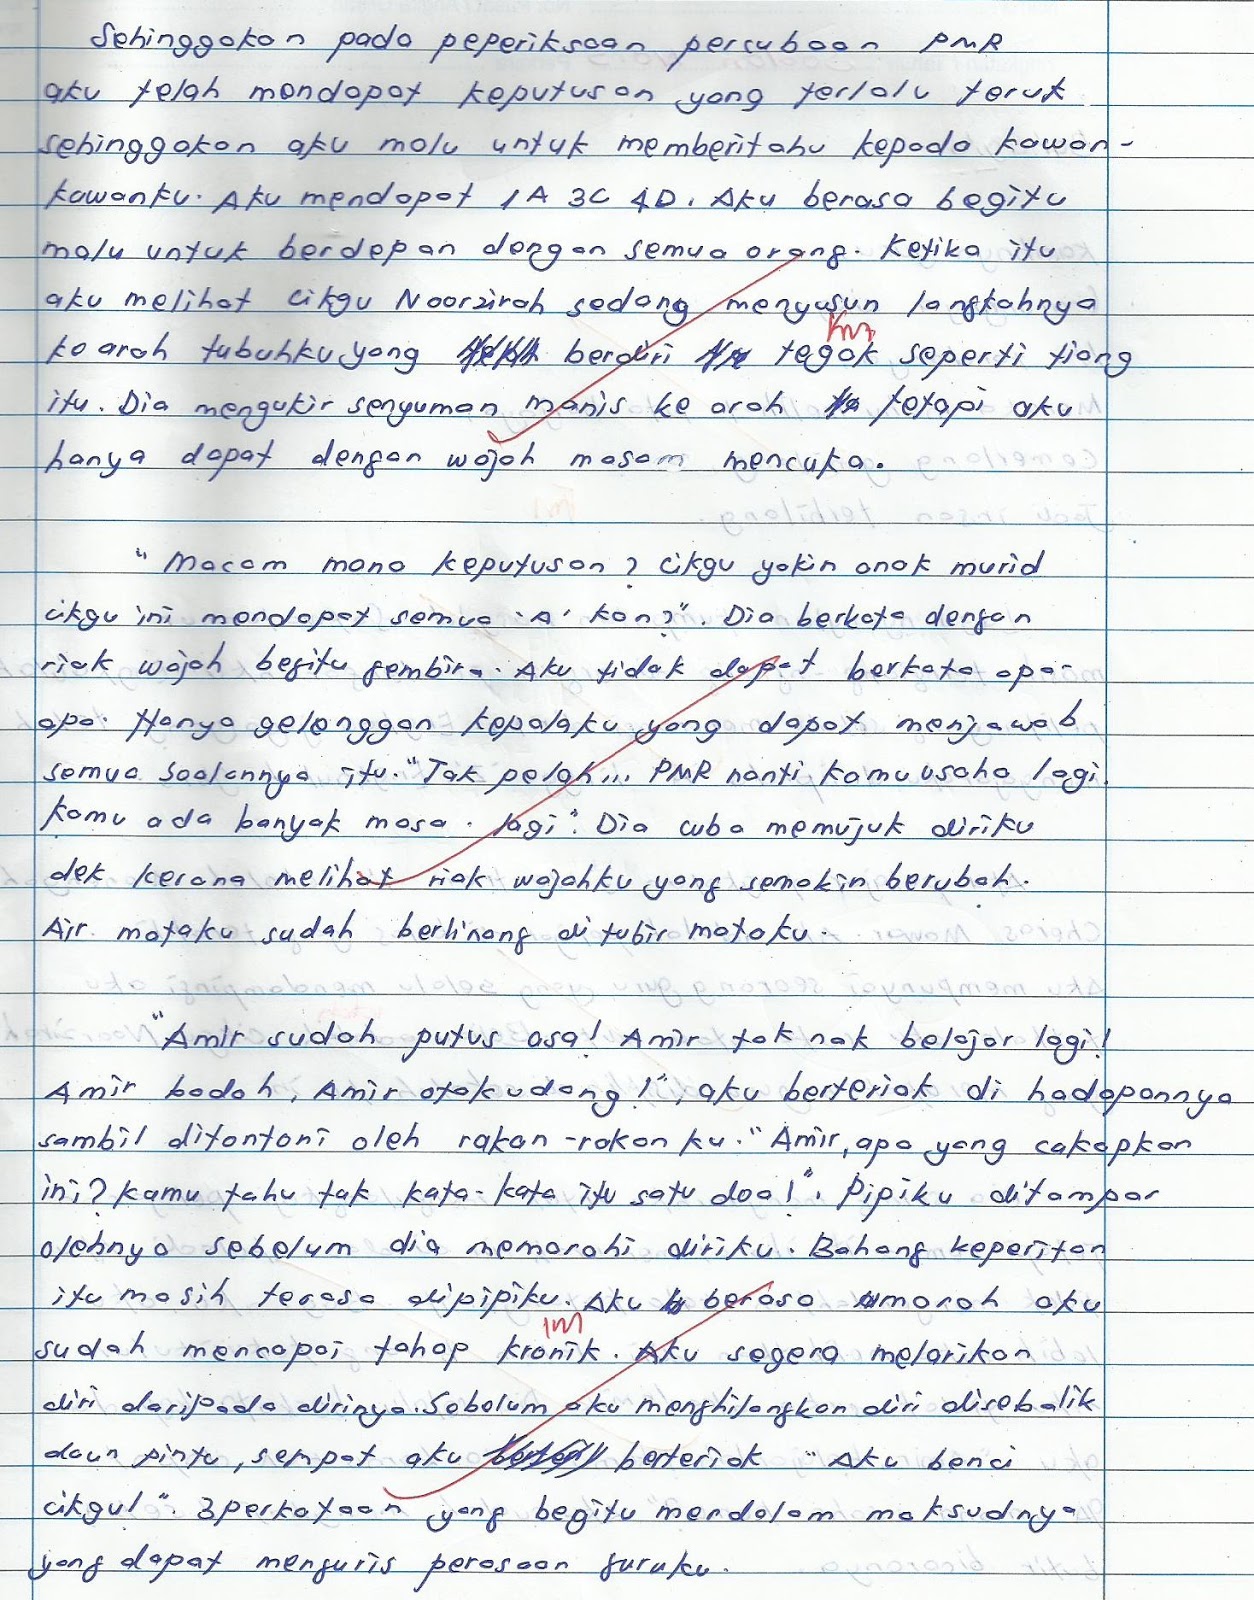 Sehinggakan pada peperiksaan percubaan PMR
aku telah mendapat keputusan yang terlalu teruk
sehinggakan aku malu untuk memberitahu kepada kawan-
kawanku. Aku mendapat 1A 3C 4D. Aku berasa begitu
malu untuk berdepan dengan semua orang. Ketika itu
aku melihat cikgu Noorzirah sedang menyusun langkahnya
ke arah tubuhku yang berdiri tegak seperti tiang
itu. Dia mengukir senyuman manis ke arah tetapi aku
hanya dapat dengan wajah masam mencuka.
"Macam mana keputusan? cikgu yakin anak murid
cikgu ini mendapat semua 'A' kan?". Dia berkata dengan
riak wajah begitu gembira. Aku tidak dapat berkata apa-
apa. Hanya gelenggan kepalaku yang dapat menjawab
semua soalannya itu. "Tak pelah... PMR nanti kamu usaha lagi.
kamu ada banyak masa. lagi". Dia cuba memujuk diriku
dek kerana melihat riak wajahku yang semakin berubah.
Air mataku sudah berlinang di tubir mataku.
"Amir sudah putus asa! Amir tak nak belajar lagi!
Amir bodoh, Amir otak udang!", aku berteriak di hadapannya
sambil ditontoni oleh rakan-rakan ku. "Amir, apa yang cakapkan
ini? kamu tahu tak kata-kata itu satu doa!". Pipiku ditampar
olehnya sebelum dia memarahi diriku. Bahang keperitan
itu masih terasa dipipiku. Aku berasa amarah aku
sudah mencapai tahap kronik. Aku segera melarikan
diri daripada dirinya. Sebelum aku menghilangkan diri disebalik
daun pintu, sempat aku berteriak "Aku benci
cikgu!". 3perkataan yang begitu mendalam maksudnya
yang dapat menguris perasaan guruku.